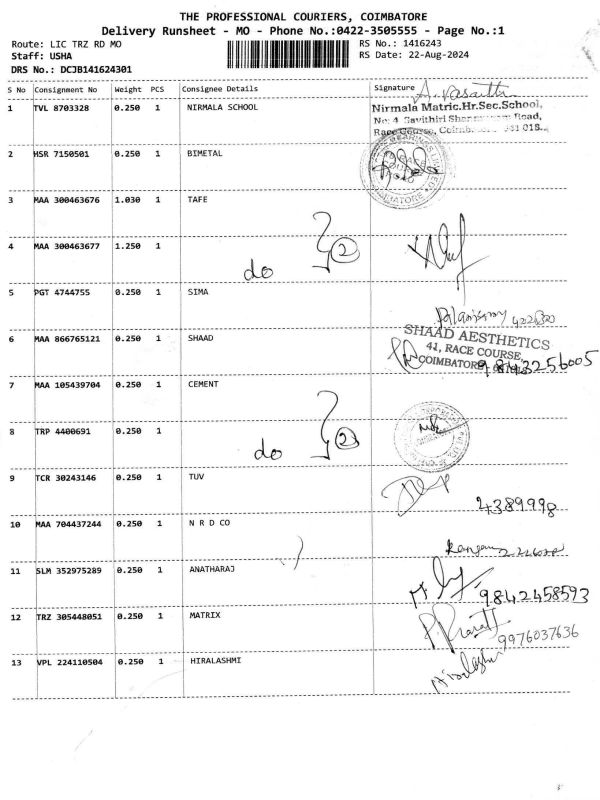 THE PROFESSIONAL COURIERS, COIMBATORE
Delivery Runsheet - MO - Phone No.:0422-3505555 - Page No.:1
Route: LIC TRZ RD MO
RS No.: 1416243
Staff: USHA
RS Date: 22-Aug-2024
DRS No.: DCJB141624301
S No Consignment No Weight PCS Consignee Details Signature
1 TVL 8703328 0.250 1 NIRMALA SCHOOL
Nirmala Matric.Hr.Sec.School,
Race Course,
2 HSR 7150501 0.250 1 BIMETAL
COIMBATORE
3 MAA 300463676 1.030 1 TAFE
4 MAA 300463677 1.250 1
do 2
5 PGT 4744755 0.250 1 SIMA
6 MAA 866765121 0.250 1 SHAAD
SHAAD AESTHETICS
41, RACE COURSE,
COIMBATORE
9843256005
7 MAA 105439704 0.250 1 CEMENT
8 TRP 4400691 0.250 1
do 2
9 TCR 30243146 0.250 1 TUV
4389998
10 MAA 704437244 0.250 1 N R D CO
11 SLM 352975289 0.250 1 ANATHARAJ
9842458593
12 TRZ 305448051 0.250 1 MATRIX
9976037636
13 VPL 224110504 0.250 1 HIRALASHMI